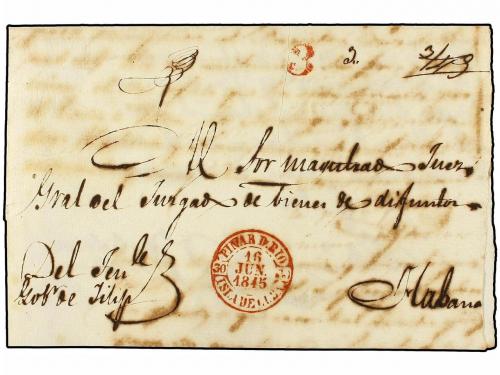 3 3. 3/43
Al Sor magistrado Juez
Gral del Juzgado de bienes de difuntos.
Del Tente
Gobr de Filip
PINAR D. RIO
30
16
JUN.
1845
ISLA DE CUBA
Habana